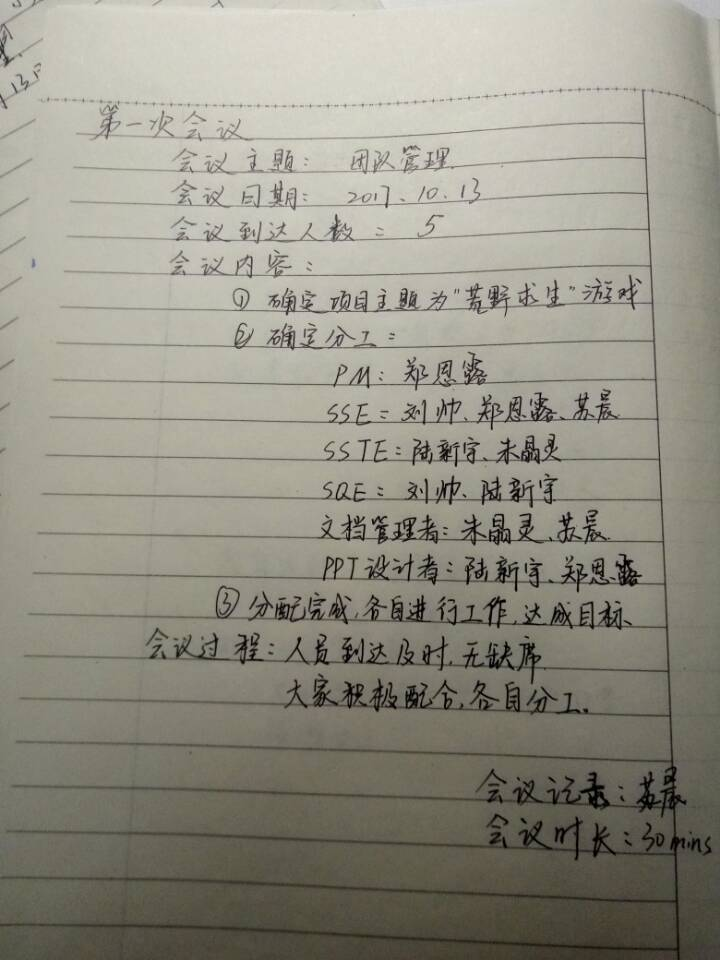 第一次会议
会议主题：团队管理.
会议日期：2017.10.13
会议到达人数：5
会议内容：
① 确定项目主题为"荒野求生"游戏
② 确定分工：
PM：郑恩露
SSE：刘帅、郑恩露、苏晨
SSTE：陆新宇、朱晶灵
SQE：刘帅、陆新宇
文档管理者：朱晶灵、苏晨.
PPT设计者：陆新宇、郑恩露
③ 分配完成，各自进行工作，达成目标、
会议过程：人员到达及时，无缺席.
大家积极配合，各自分工。
会议记录：苏晨
会议时长：30mins